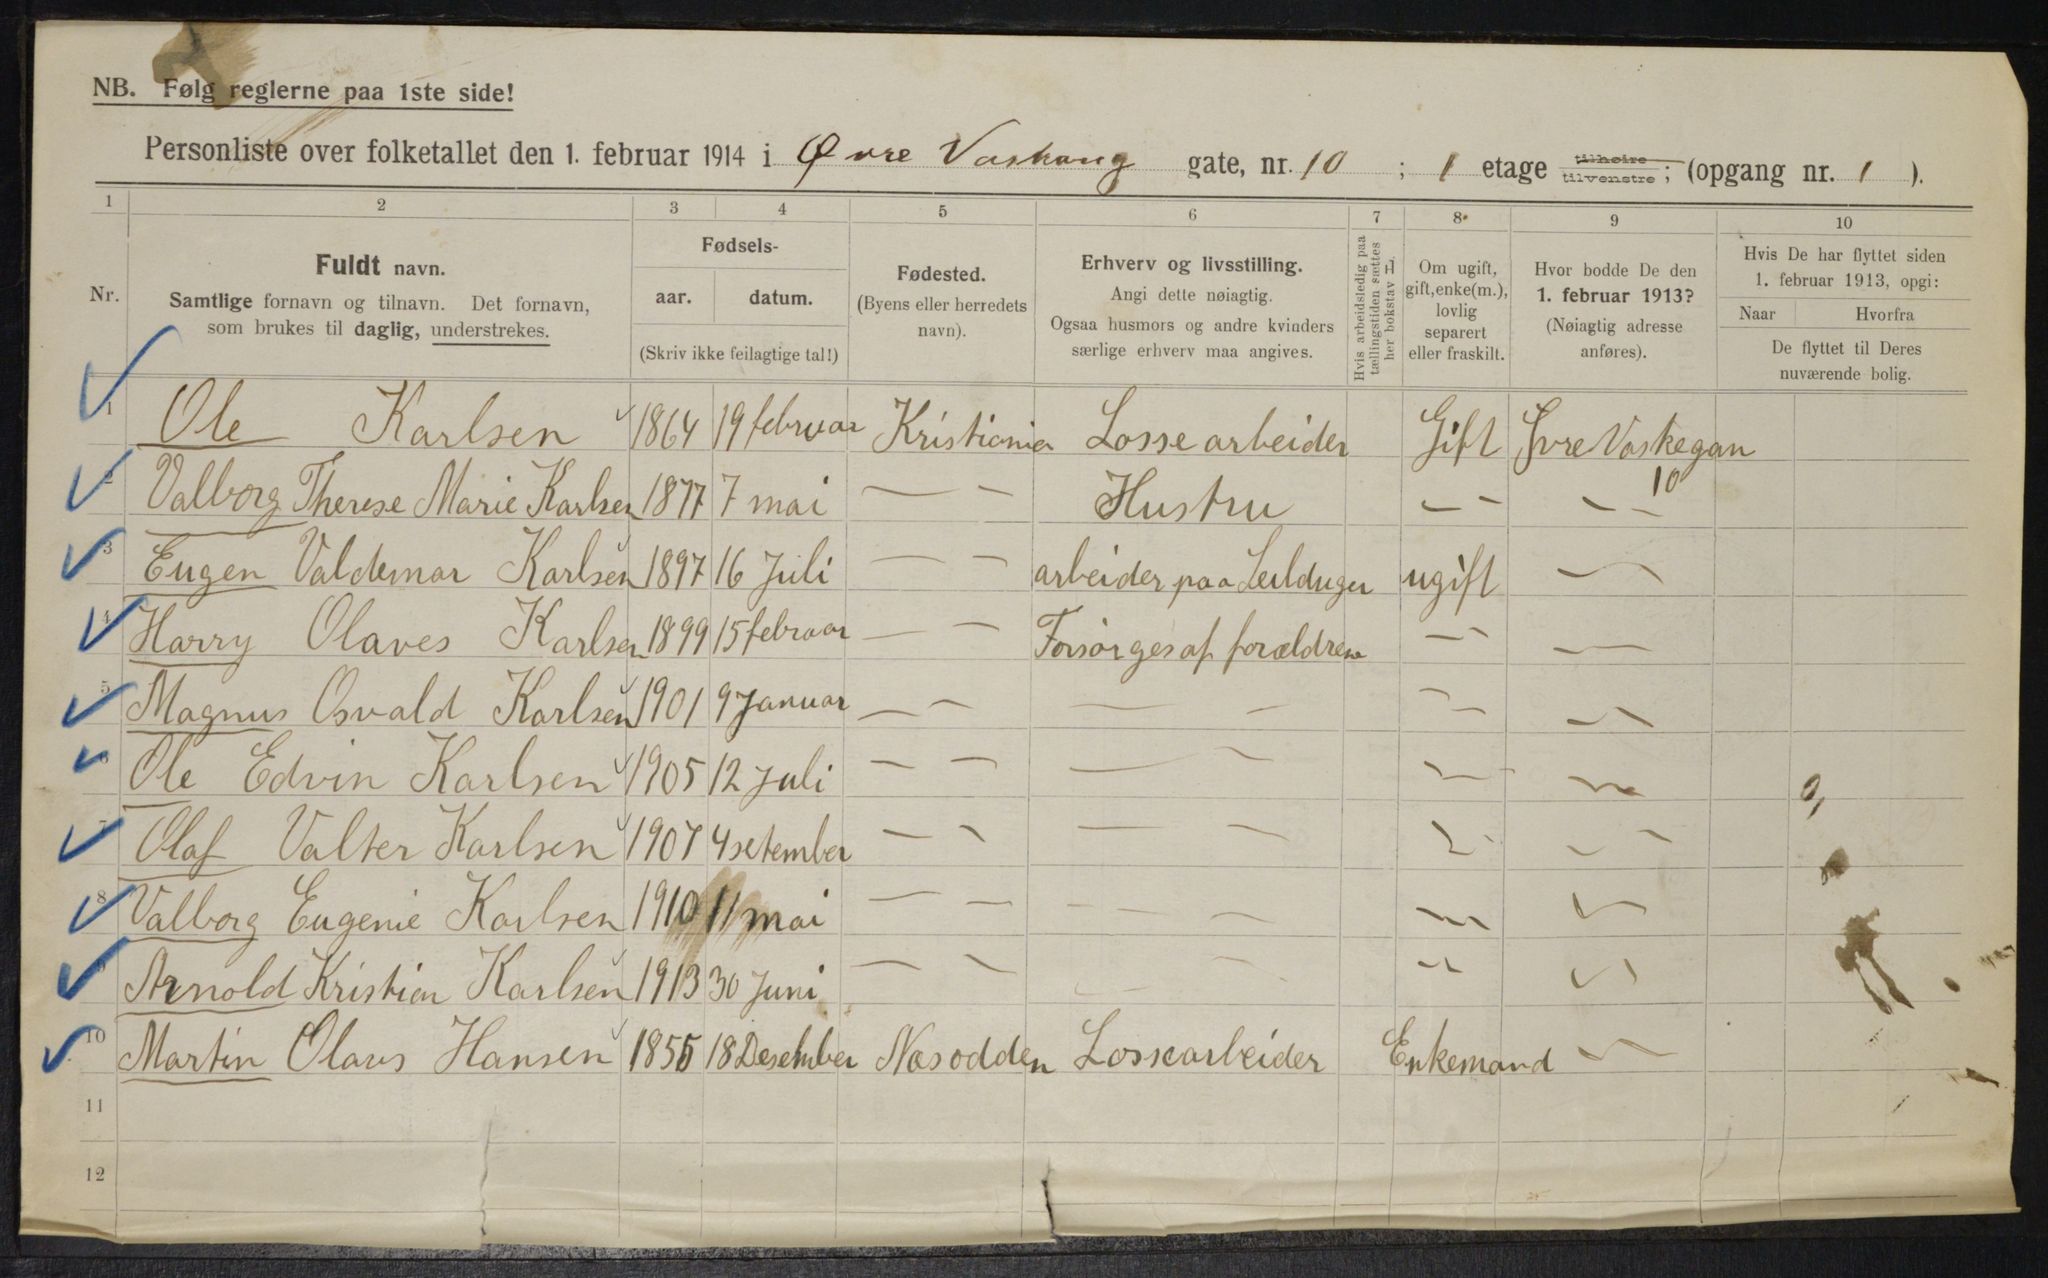 NB. Følg reglerne paa 1ste side!
Personliste over folketallet den 1. februar 1914 i Øvre Vaskang gate, nr. 10 ; 1 etage tilhøire tilvenstre ; (opgang nr. 1 ).
1 2 3 4 5 6 7 8 9 10
Nr.
Fuldt navn.
Samtlige fornavn og tilnavn. Det fornavn,
som brukes til daglig, understrekes.
Fødsels-
aar. datum.
(Skriv ikke feilagtige tal!)
Fødested.
(Byens eller herredets
navn).
Erhverv og livsstilling.
Angi dette nøiagtig.
Ogsaa husmors og andre kvinders
særlige erhverv maa angives.
Hvis arbeidsledig paa
tællingstiden sættes
her bokstav L.
Om ugift,
gift, enke(m.),
lovlig
separert
eller fraskilt.
Hvor bodde De den
1. februar 1913?
(Nøiagtig adresse
anføres).
Hvis De har flyttet siden
1. februar 1913, opgi:
Naar Hvorfra
De flyttet til Deres
nuværende bolig.
1 Ole Karlsen 1864 19 februar Kristiania Lossearbeider Gift Øvre Vaskegan 10
2 Valborg Therese Marie Karlsen 1877 7 mai — — Hustru — — — —
3 Eugen Valdemar Karlsen 1897 16 Juli — — arbeider paa ugift —
4 Harry Olaves Karlsen 1899 15 februar — — Forsørges af forældrene — — —
5 Magnus Osvald Karlsen 1901 9 Januar — — — — — — —
6 Ole Edvin Karlsen 1905 12 Juli — — — — — — —
7 Olaf Valter Karlsen 1907 4 setember — — — — — — —
8 Valborg Eugenie Karlsen 1910 11 mai — — — — — — —
9 Arnold Kristian Karlsen 1913 30 Juni — — — — — — —
10 Martin Olaus Hansen 1855 18 Desember Nesodden Lossearbeider Enkemand —
11
12